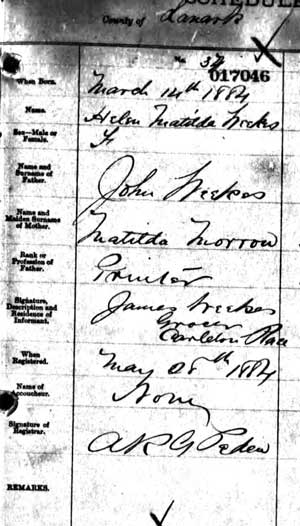 SCHEDULE
County of Lanark
No. 34
017046
When Born.
March 14th 1884
Name.
Helen Matilda Weekes
Sex—Male or Female.
F
Name and Surname of Father.
John Weekes
Name and Maiden Surname of Mother.
Matilda Morrow
Rank or Profession of Father.
Printer
Signature, Description and Residence of Informant.
James Weekes
Grocer
Carleton Place
When Registered.
May 28th 1884
Name of Accoucheur.
None
Signature of Registrar.
A R G Peden
REMARKS.